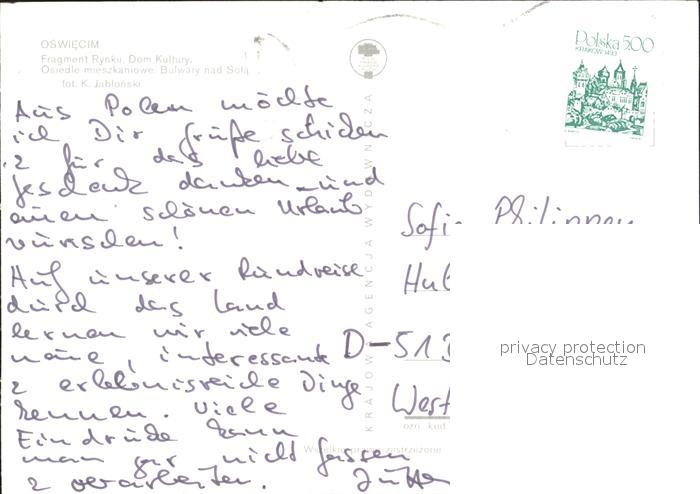 OŚWIĘCIM
Fragment Rynku, Dom Kultury,
Osiedle mieszkaniowe, Bulwary nad Sołą
fot. K. Jabłoński
Polska 5.00
KRAKÓW 1493
KRAJOWA AGENCJA WYDAWNICZA
Aus Polen möchte
ich Dir Grüße schicken
& für das liebe
Geschenk danken und
einen schönen Urlaub
wünschen!
Auf unserer Rundreise
durch das Land
lernen wir viele
neue, interessante
& erlebnisreiche Dinge
kennen. Viele
Eindrücke kann
man gar nicht fassen
& verarbeiten. Jutta
Sofi Philippen
Hub
D-513
West
ozn. kod.
Wszelkie prawa zastrzeżone
privacy protection
Datenschutz